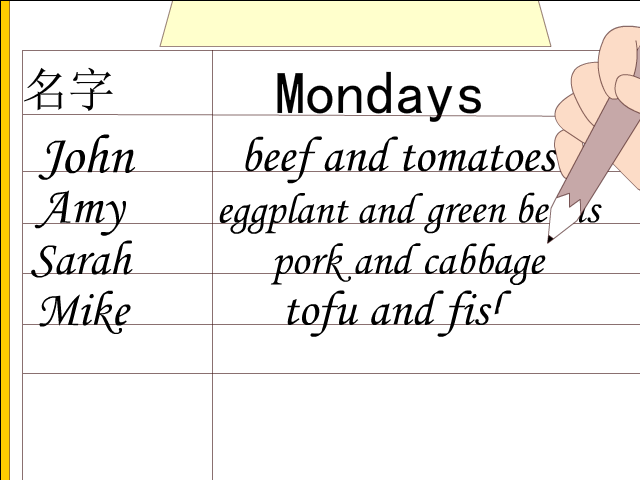 名字 Mondays
John beef and tomatoes
Amy eggplant and green
Sarah pork and cabbage
Mike tofu and